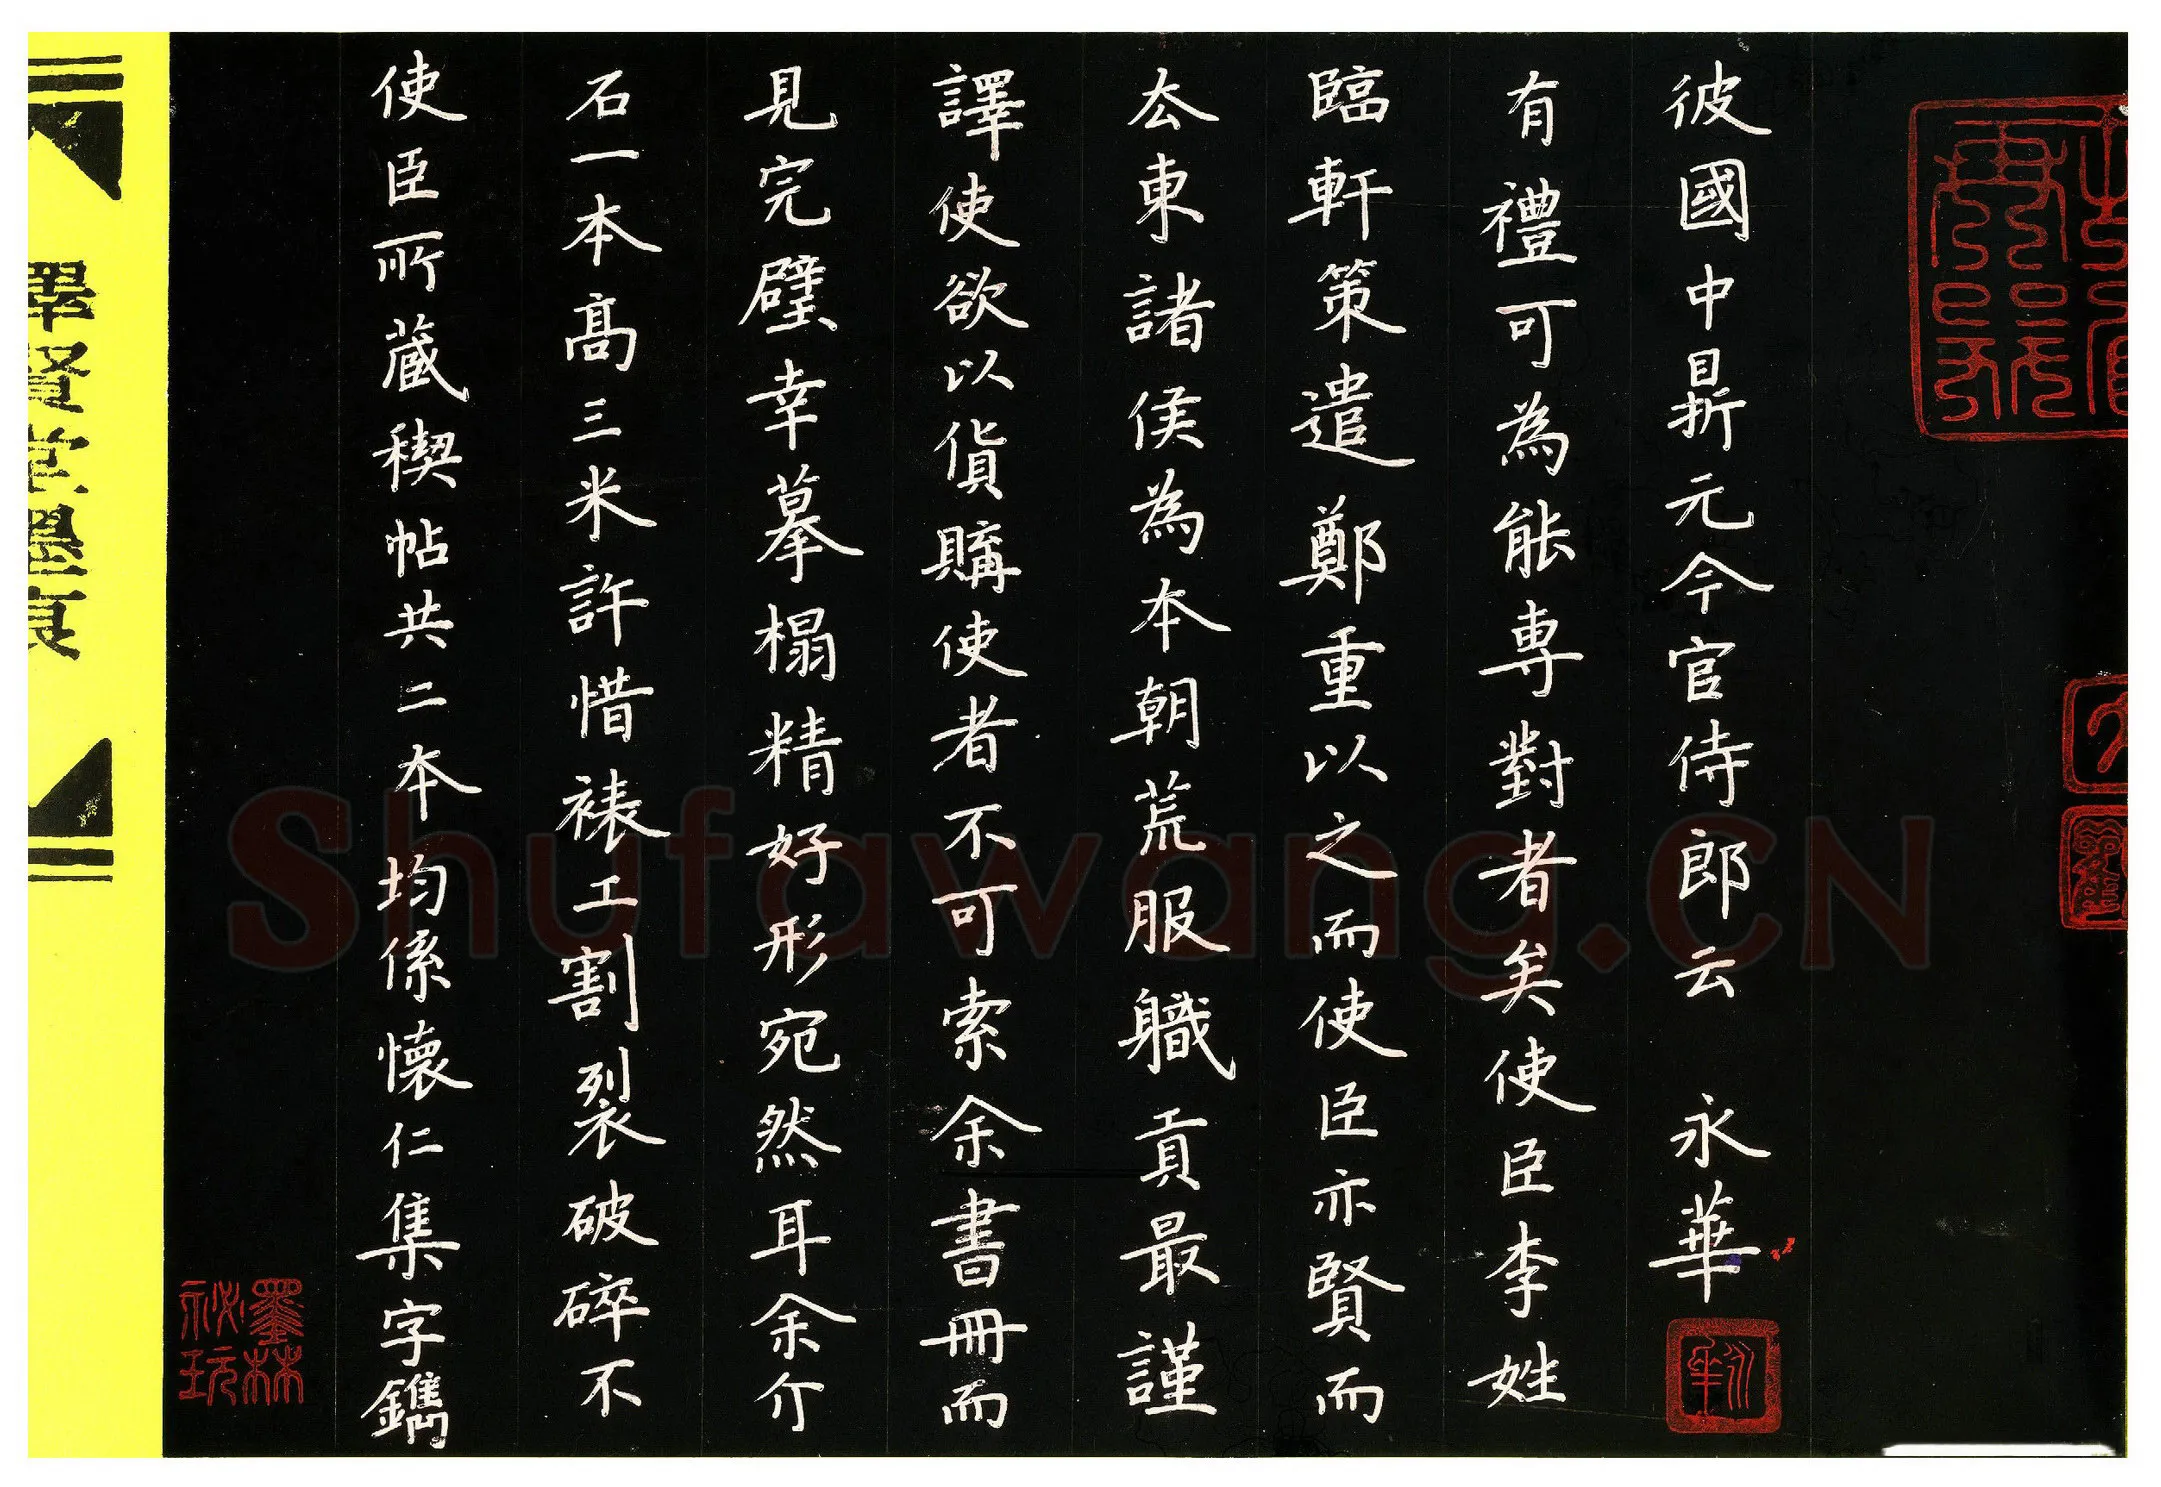 賢堂墨痕
使臣所藏稧帖共二本均係懷仁集字鐫
石一本高三米許惜裱工割裂破碎不
見完璧幸摹榻精好形宛然耳余介
譯使欲以貨購使者不可索余書冊而
厺東諸侯為本朝荒服職貢最謹
臨軒策遣鄭重以之而使臣亦賢而
有禮可為能專對者矣使臣李姓
彼國中鼎元今官侍郎云 永華
永華
墨林祕玩
Shufawang.CN